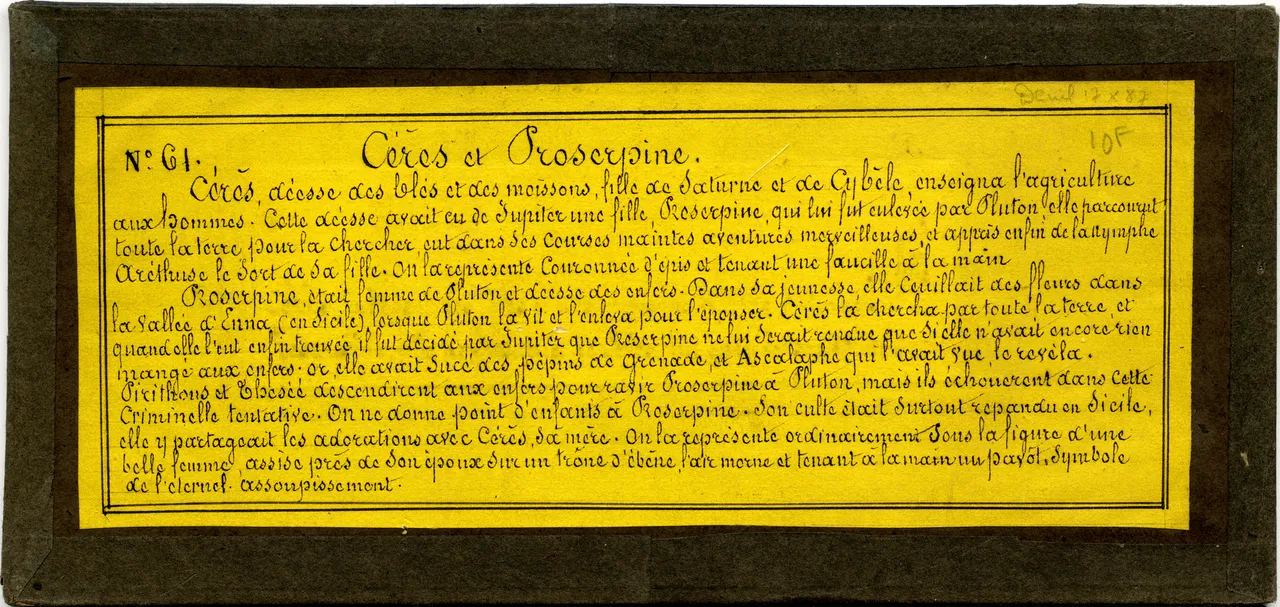 Deuil 17 x 87
10F
Nº 61. Cérès et Proserpine.
Cérès, déesse des blés et des moissons, fille de Saturne et de Cybèle, enseigna l'agriculture
aux hommes. Cette déesse avait eu de Jupiter une fille, Proserpine, qui lui fut enlevée par Pluton, elle parcourut
toute la terre, pour la chercher, eut dans ses courses maintes aventures merveilleuses, et apprit enfin de la nymphe
Aréthuse le sort de sa fille. On la représente couronnée d'épis et tenant une faucille à la main
Proserpine, était femme de Pluton et déesse des enfers. Dans sa jeunesse, elle ceuillait des fleurs dans
la vallée d'Enna, (en Sicile), lorsque Pluton la vit et l'enleva pour l'épouser. Cérès la chercha par toute la terre, et
quand elle l'eut enfin trouvée, il fut décidé par Jupiter que Proserpine ne lui serait rendue que si elle n'avait encore rien
mangé aux enfers. or, elle avait sucé des pépins de grenade, et Ascalaphe qui l'avait vue, le revéla.
Pirithoüs et Thésée descendirent aux enfers pour ravir Proserpine à Pluton, mais ils échouerent dans cette
criminelle tentative. On ne donne point d'enfants à Proserpine. Son culte était surtout repandu en Sicile,
elle y partageait les adorations avec Cérès, sa mère. On la représente ordinairement sous la figure d'une
belle femme, assise près de son époux sur un trône d'ébène, l'air morne et tenant à la main un pavot, symbole
de l'éternel assoupissement.